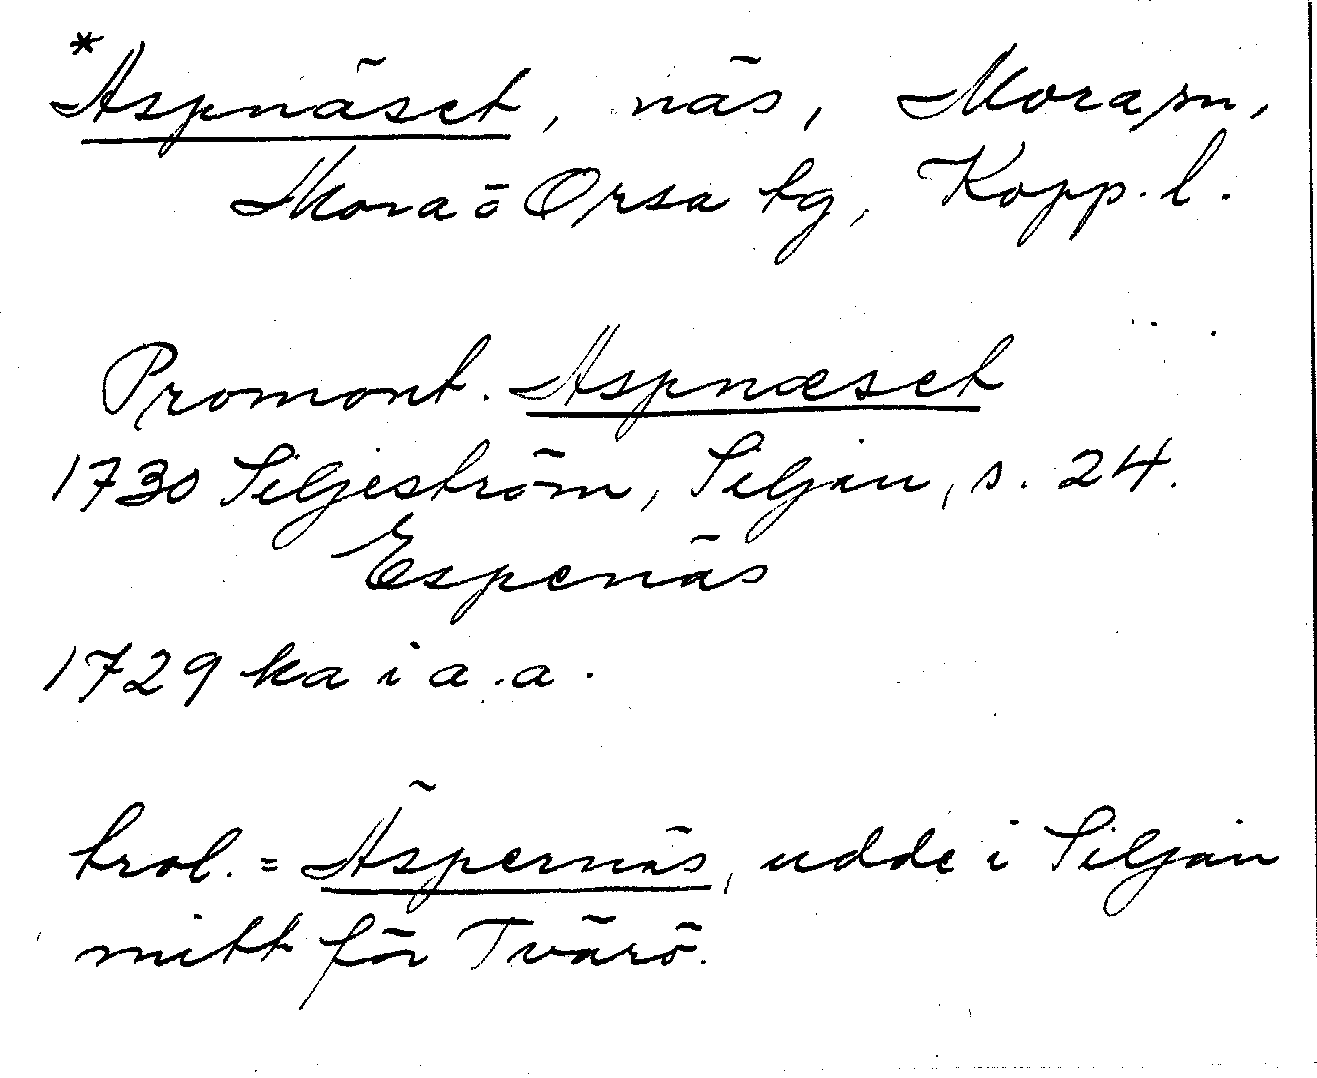 *Aspnäset, näs, Mora sn,
Mora o Orsa tg, Kopp. l.
Promont. Aspnæset
1730 Siljeström, Siljan, s. 24.
Espenäs
1729 ka i a.a.
trol. = Äspernäs, udde i Siljan
mitt för Tvärö.